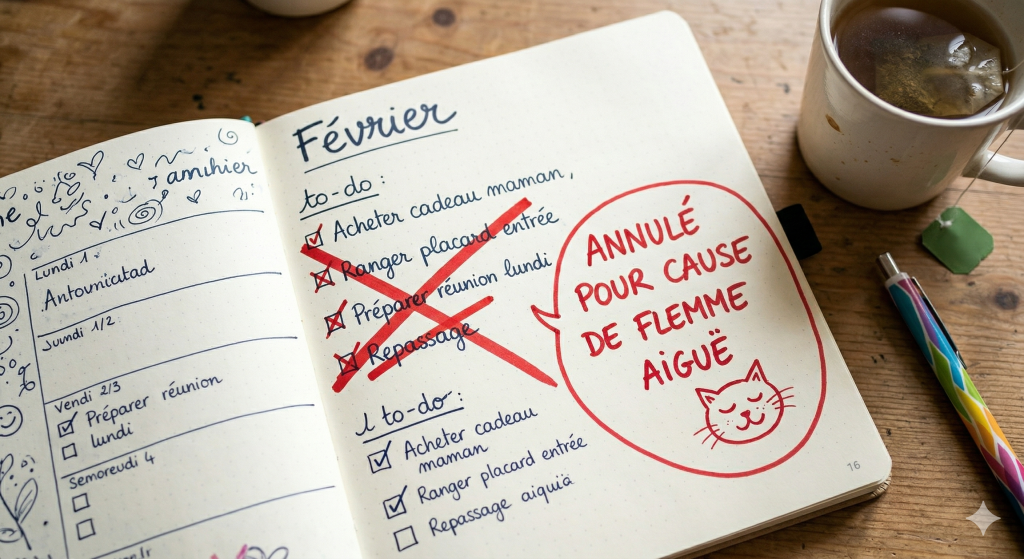 Lundi 1
Vendi 2/3
Préparer réunion
lundi
Semoreudi 4
Février
to-do:
Acheter cadeau maman,
Ranger placard entrée
Préparer réunion lundi
Repassage
to-do:
Acheter cadeau
maman
Ranger placard entrée
Repassage aiquià
ANNULÉ
POUR CAUSE
DE FLEMME
AiGUË
16